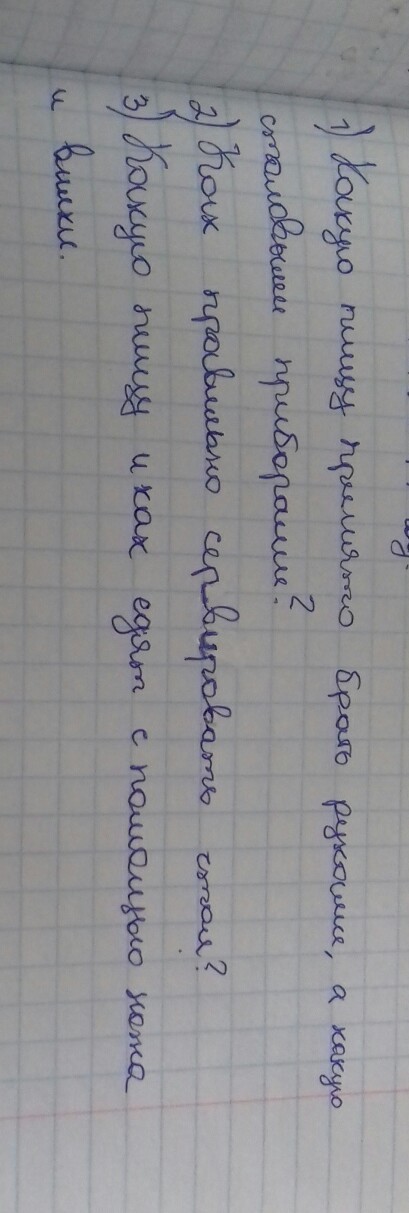 1) Какую пищу принято брать руками, а какую
столовыми приборами?
2) Как правильно сервировать стол?
3) Какую пищу и как едят с помощью ножа
и вилки.